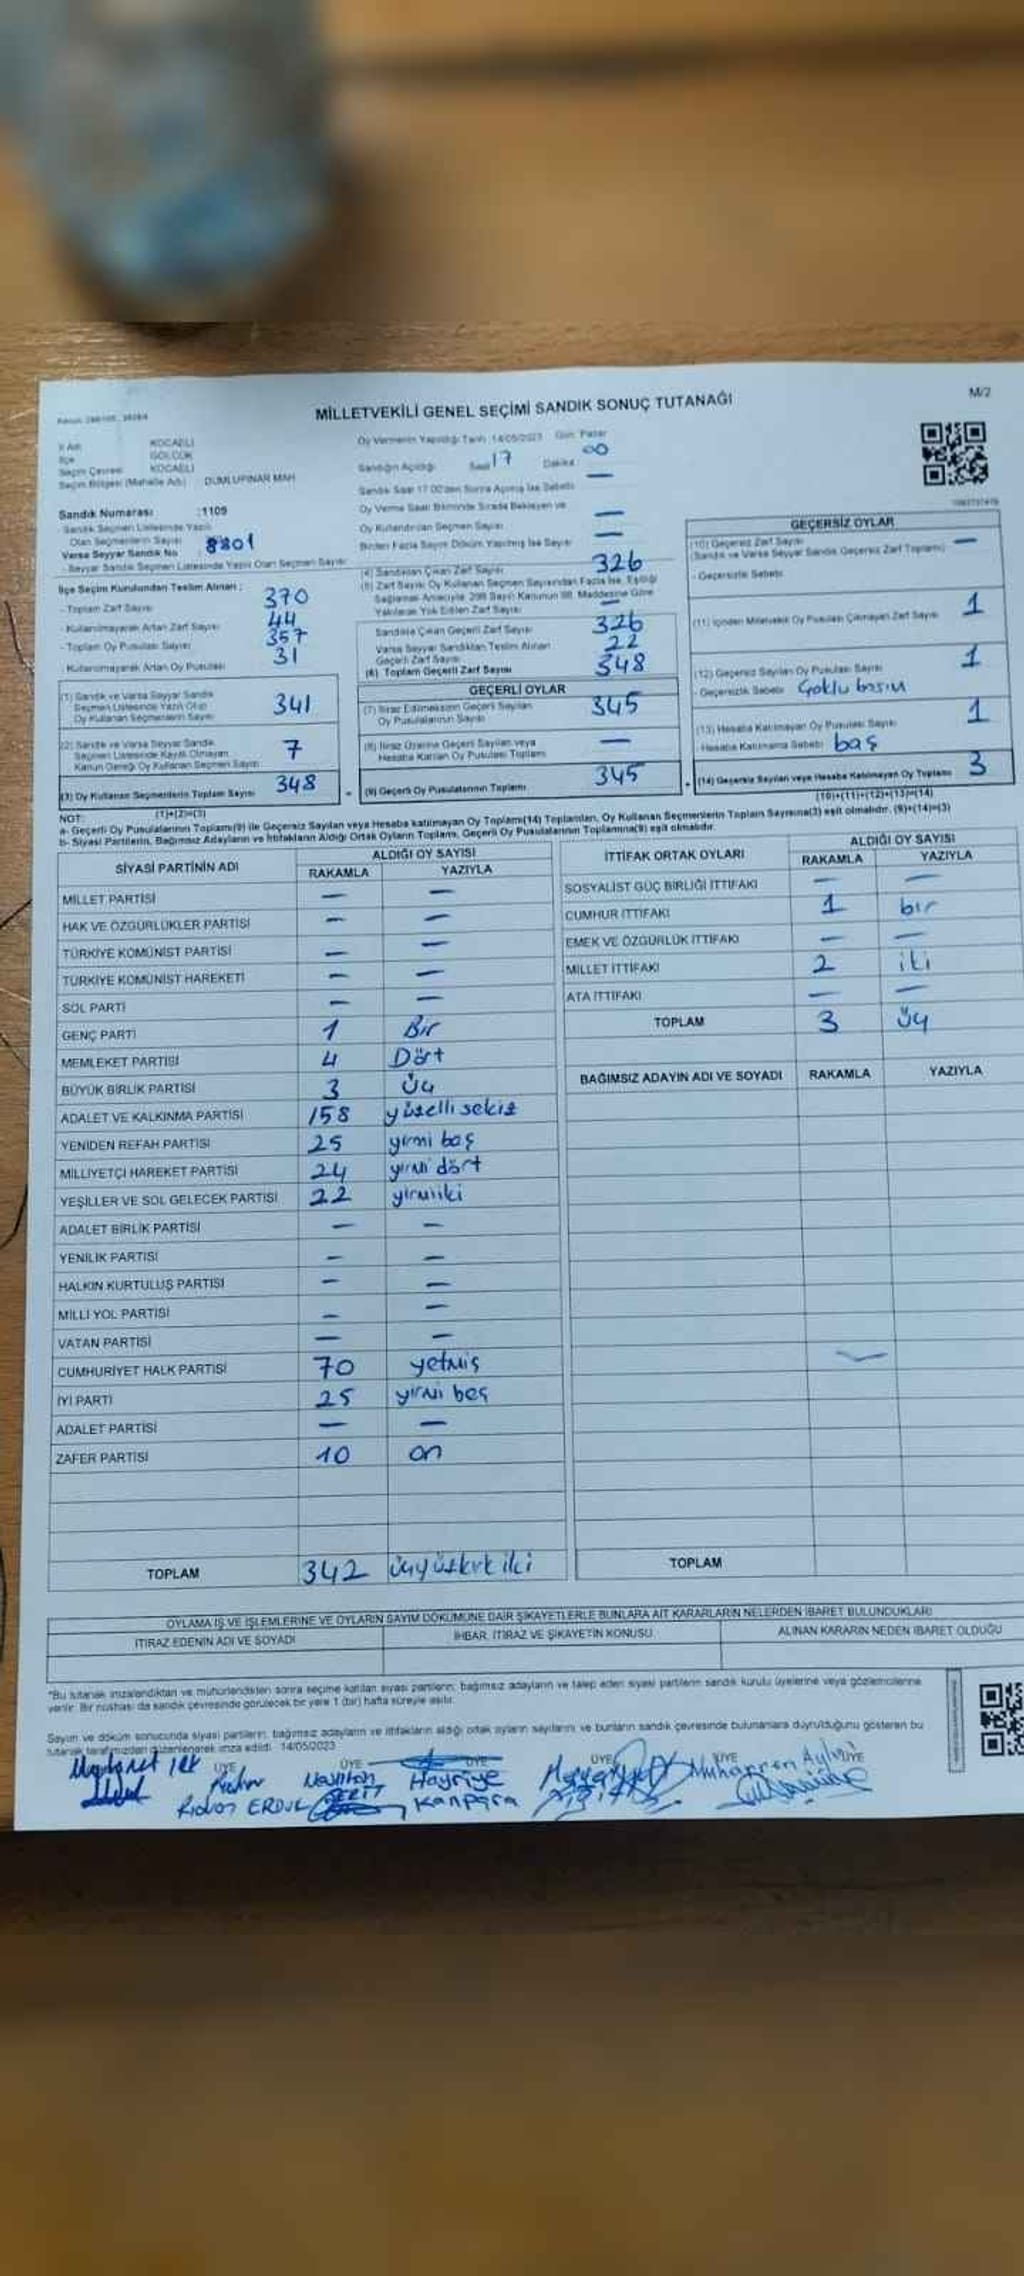 MİLLETVEKİLİ GENEL SEÇİMİ SANDIK SONUÇ TUTANAĞI
M/2
İl Adı KOCAELİ
İlçe GÖLCÜK
Seçim Çevresi KOCAELİ
Seçim Bölgesi (Mahalle Adı) DUMLUPINAR MAH
Sandık Numarası :1109
Sandık Seçmen Listesinde Yazılı
Olan Seçmenlerin Sayısı
Varsa Seyyar Sandık No 8801
- Seyyar Sandık Seçmen Listesinde Yazılı Olan Seçmen Sayısı
İlçe Seçim Kurulundan Teslim Alınan ;
- Toplam Zarf Sayısı 370
- Kullanılmayarak Artan Zarf Sayısı 44
- Toplam Oy Pusulası Sayısı 357
- Kullanılmayarak Artan Oy Pusulası 31
(1) Sandık ve Varsa Seyyar Sandık
Seçmen Listesinde Yazılı Olup
Oy Kullanan Seçmenlerin Sayısı 341
(2) Sandık ve Varsa Seyyar Sandık
Seçmen Listesinde Kayıtlı Olmayan
Kanun Gereği Oy Kullanan Seçmen Sayısı 7
(3) Oy Kullanan Seçmenlerin Toplam Sayısı 348
(1)+(2)=(3)
Oy Vermenin Yapıldığı Tarih 14/05/2023 Gün Pazar
Sandığın Açıldığı Saat 17 Dakika 00
Sandık Saat 17:00'den Sonra Açılmış İse Sebebi —
Oy Verme Saati Bitiminde Sırada Bekleyen ve
Oy Kullandırılan Seçmen Sayısı —
Birden Fazla Sayım Döküm Yapılmış İse Sayısı —
(4) Sandıktan Çıkan Zarf Sayısı 326
(5) Zarf Sayısı Oy Kullanan Seçmen Sayısından Fazla İse, Eşitliği
Sağlamak Amacıyla 298 Sayılı Kanunun 98. Maddesine Göre
Yakılarak Yok Edilen Zarf Sayısı —
Sandıkta Çıkan Geçerli Zarf Sayısı 326
Varsa Seyyar Sandıktan Teslim Alınan
Geçerli Zarf Sayısı 22
(6) Toplam Geçerli Zarf Sayısı 348
GEÇERLİ OYLAR
(7) İtiraz Edilmeksizin Geçerli Sayılan
Oy Pusulalarının Sayısı 345
(8) İtiraz Üzerine Geçerli Sayılan veya
Hesaba Katılan Oy Pusulası Toplamı —
(9) Geçerli Oy Pusulalarının Toplamı 345
GEÇERSİZ OYLAR
(10) Geçersiz Zarf Sayısı —
(Sandık ve Varsa Seyyar Sandık Geçersiz Zarf Toplamı)
- Geçersizlik Sebebi
(11) İçinden Milletvekili Oy Pusulası Çıkmayan Zarf Sayısı 1
(12) Geçersiz Sayılan Oy Pusulası Sayısı 1
- Geçersizlik Sebebi Çoklu basım
(13) Hesaba Katılmayan Oy Pusulası Sayısı 1
- Hesaba Katılmama Sebebi baş
(14) Geçersiz Sayılan veya Hesaba Katılmayan Oy Toplamı 3
(10)+(11)+(12)+(13)=(14)
NOT:
a- Geçerli Oy Pusulalarının Toplamı(9) ile Geçersiz Sayılan veya Hesaba katılmayan Oy Toplamı(14) Toplamları, Oy Kullanan Seçmenlerin Toplam Sayısına(3) eşit olmalıdır. (9)+(14)=(3)
b- Siyasi Partilerin, Bağımsız Adayların ve İttifakların Aldığı Ortak Oyların Toplamı, Geçerli Oy Pusulalarının Toplamına(9) eşit olmalıdır.
SİYASİ PARTİNİN ADI ALDIĞI OY SAYISI
RAKAMLA YAZIYLA
MİLLET PARTİSİ — —
HAK VE ÖZGÜRLÜKLER PARTİSİ — —
TÜRKİYE KOMÜNİST PARTİSİ — —
TÜRKİYE KOMÜNİST HAREKETİ — —
SOL PARTİ — —
GENÇ PARTİ 1 Bir
MEMLEKET PARTİSİ 4 Dört
BÜYÜK BİRLİK PARTİSİ 3 Üç
ADALET VE KALKINMA PARTİSİ 158 yüzelli sekiz
YENİDEN REFAH PARTİSİ 25 yirmi baş
MİLLİYETÇİ HAREKET PARTİSİ 24 yirmi dört
YEŞİLLER VE SOL GELECEK PARTİSİ 22 yirmiiki
ADALET BİRLİK PARTİSİ — —
YENİLİK PARTİSİ — —
HALKIN KURTULUŞ PARTİSİ — —
MİLLİ YOL PARTİSİ — —
VATAN PARTİSİ — —
CUMHURİYET HALK PARTİSİ 70 yetmiş
İYİ PARTİ 25 yirmi beş
ADALET PARTİSİ — —
ZAFER PARTİSİ 10 on
TOPLAM 342 üçyüzkırk iki
İTTİFAK ORTAK OYLARI ALDIĞI OY SAYISI
RAKAMLA YAZIYLA
SOSYALİST GÜÇ BİRLİĞİ İTTİFAKI — —
CUMHUR İTTİFAKI 1 bir
EMEK VE ÖZGÜRLÜK İTTİFAKI — —
MİLLET İTTİFAKI 2 iki
ATA İTTİFAKI — —
TOPLAM 3 Üç
BAĞIMSIZ ADAYIN ADI VE SOYADI RAKAMLA YAZIYLA
TOPLAM
OYLAMA İŞ VE İŞLEMLERİNE VE OYLARIN SAYIM DÖKÜMÜNE DAİR ŞİKAYETLERLE BUNLARA AİT KARARLARIN NELERDEN İBARET BULUNDUKLARI
İTİRAZ EDENİN ADI VE SOYADI İHBAR, İTİRAZ VE ŞİKAYETİN KONUSU ALINAN KARARIN NEDEN İBARET OLDUĞU
*Bu tutanak imzalandıktan ve mühürlendikten sonra seçime katılan siyasi partilerin, bağımsız adayların ve talep eden siyasi partilerin sandık kurulu üyelerine veya gözlemcilerine
verilir. Bir nüshası da sandık çevresinde görülecek bir yere 1 (bir) hafta süreyle asılır.
Sayım ve döküm sonucunda siyasi partilerin, bağımsız adayların ve ittifakların aldığı ortak oyların sayılarını ve bunların sandık çevresinde bulunanlara duyurulduğunu gösteren bu
tutanak tarafımızdan düzenlenerek imza edildi. 14/05/2023
ÜYE ÜYE ÜYE ÜYE ÜYE ÜYE
Hayriye
Kanpara
Muharrem